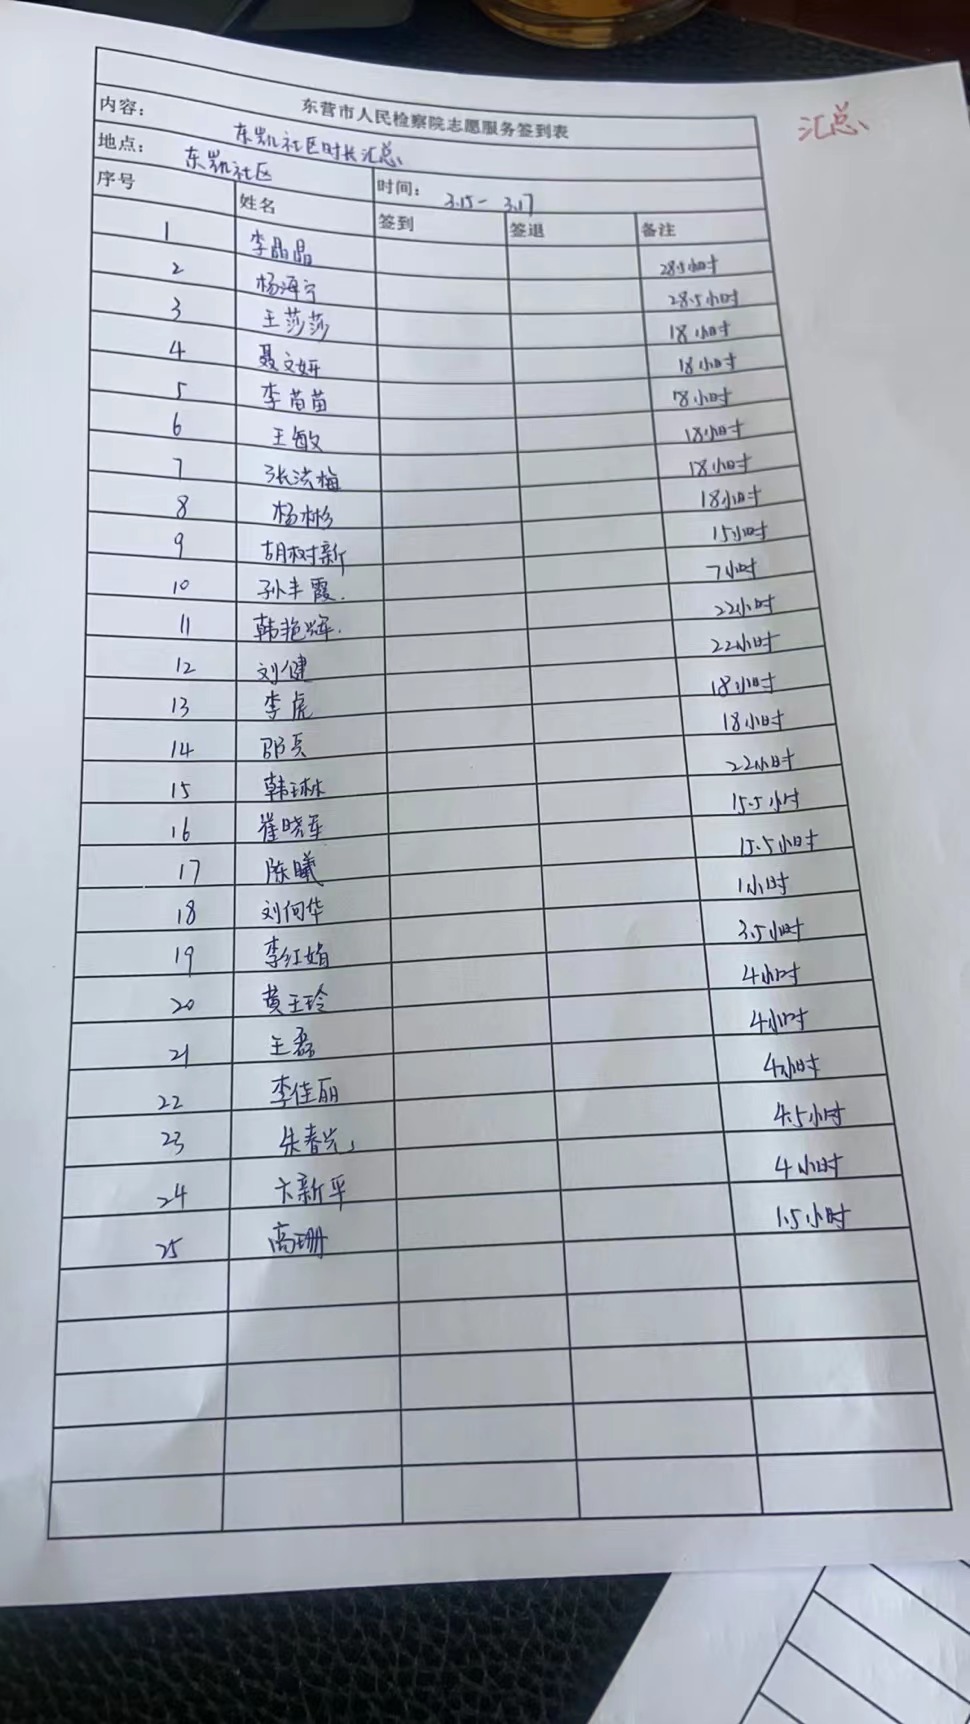 汇总
东营市人民检察院志愿服务签到表
内容： 东凯社区时长汇总
地点： 东凯社区 时间： 3.15- 3.17
序号 姓名 签到 签退 备注
1 李晶晶 28.5小时
2 杨海宁 28.5小时
3 王莎莎 18小时
4 聂文妍 18小时
5 李苗苗 18小时
6 王敏 18小时
7 张洪梅 18小时
8 杨彬 18小时
9 胡树新 15小时
10 孙丰霞. 7小时
11 韩艳辉. 22小时
12 刘健 22小时
13 李虎 18小时
14 邵亮 18小时
15 韩琳 22小时
16 崔晓军 15.5小时
17 陈曦 15.5小时
18 刘向华 1小时
19 李红娟 3.5小时
20 黄玉玲 4小时
21 王磊 4小时
22 李佳丽 4小时
23 朱春 4.5小时
24 卞新平 4小时
25 高珊 1.5小时